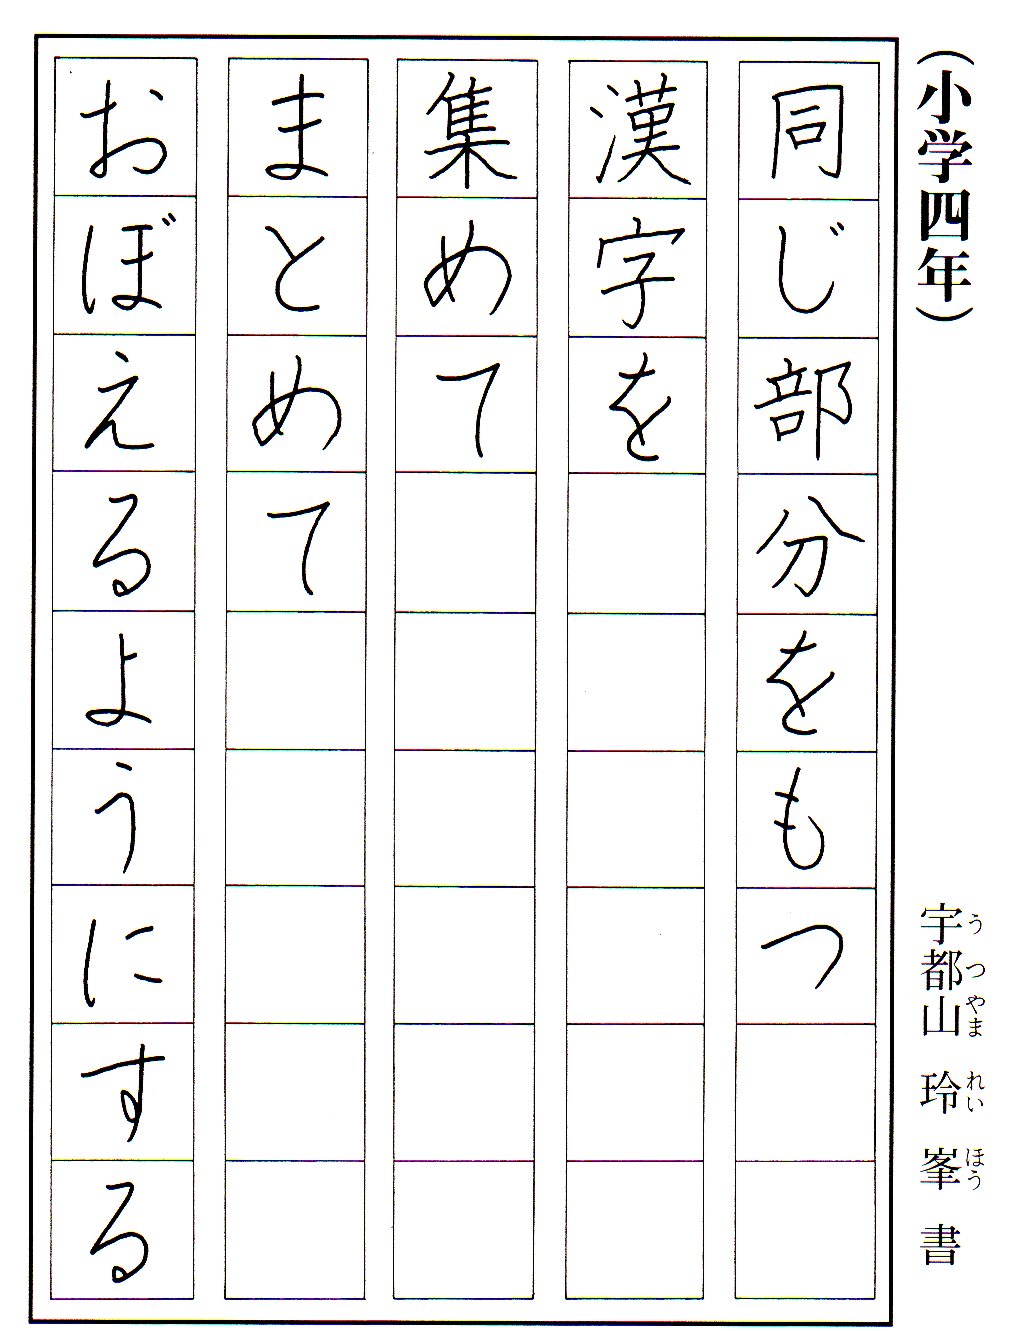 (小学四年)
宇都山 玲 峯 書
うつやま れい ほう
同じ部分をもつ
漢字を
集めて
まとめて
おぼえるようにする